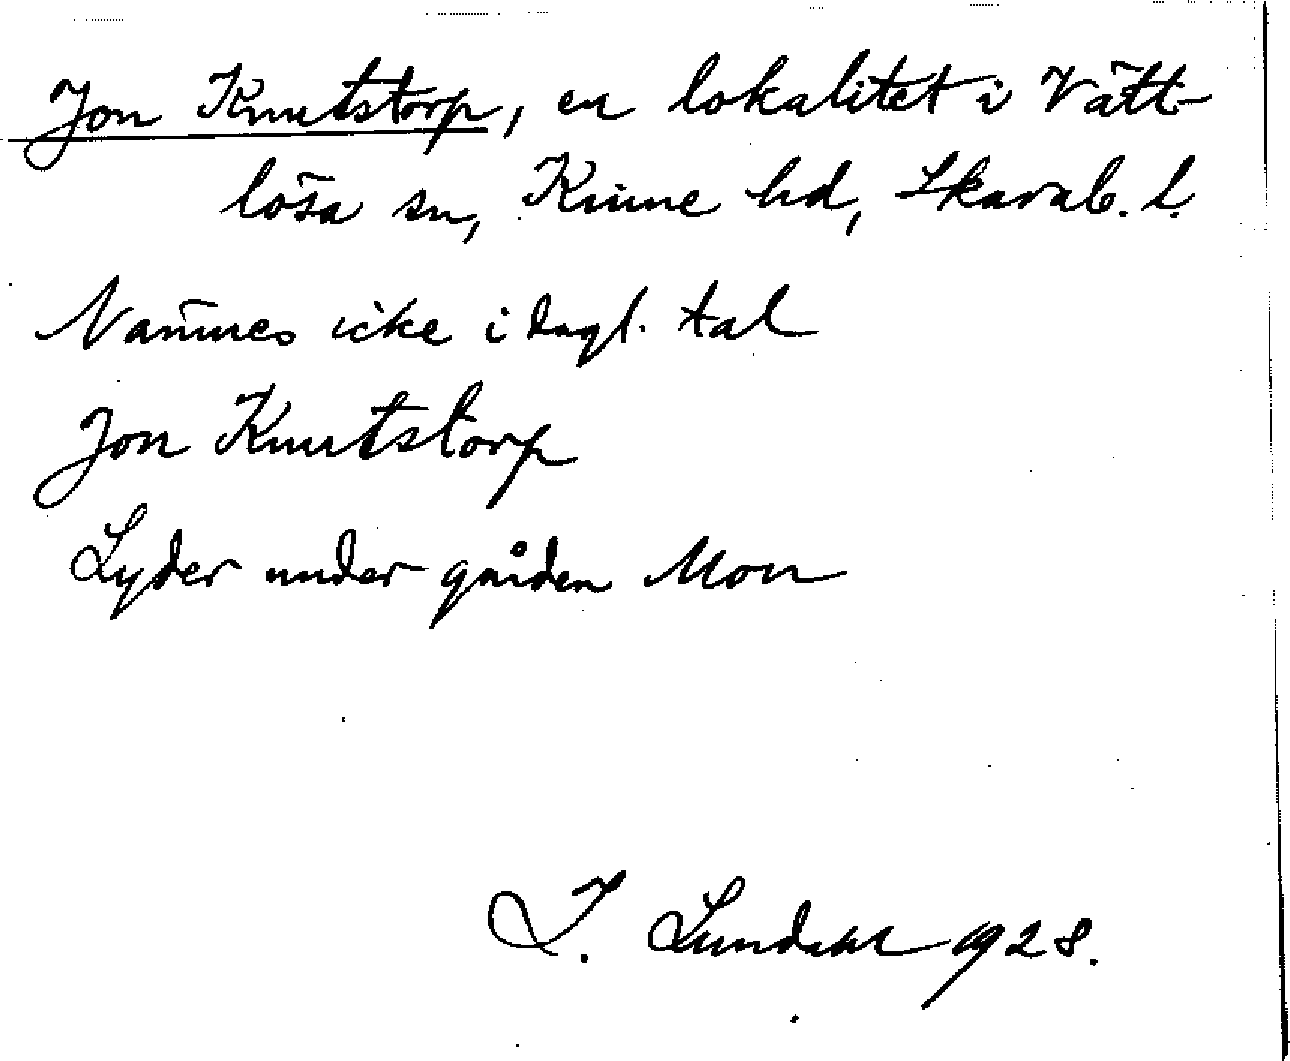 Jon Knutstorp, en lokalitet i Vätt-
lösa sn, Kinne hd, Skarab. l.
Nämnes icke i dagl. tal
Jon Knutstorp
Lyder under gården Mon
I. Lundahl 1928.